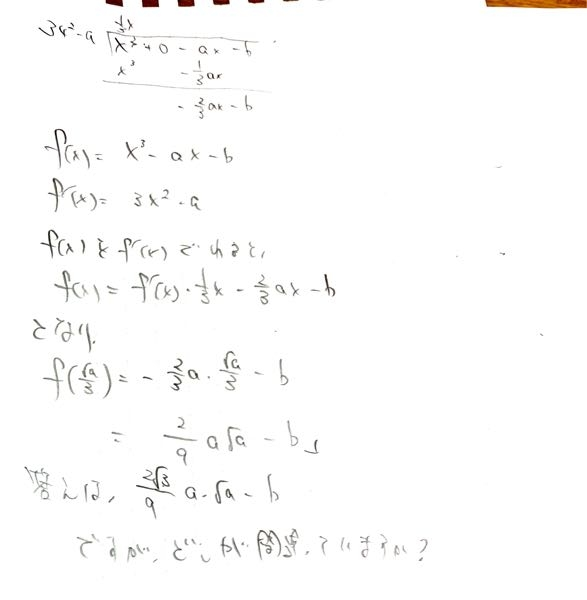 1/3 x
3x² - a ) x³ + 0 - ax - b
x³ - 1/3 ax
- 2/3 ax - b
f(x) = x³ - ax - b
f'(x) = 3x² - a
f(x) を f'(x) で わると、
f(x) = f'(x)・1/3 x - 2/3 ax - b
となり、
f(√a/3) = - 2/3 a・√a/3 - b
= 2/9 a√a - b
答えは、 2√3/9 a・√a - b
ですが、どこが間違っていますか?